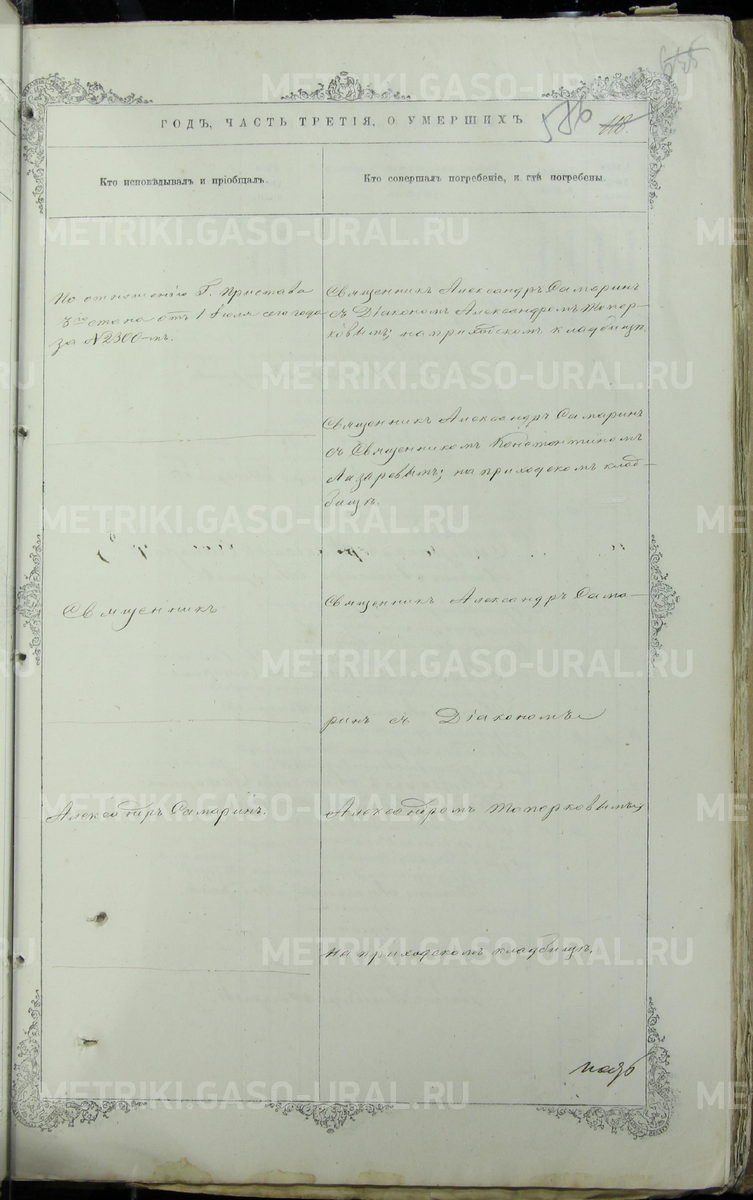 586
ГОДЪ, ЧАСТЬ ТРЕТІЯ, О УМЕРШИХЪ
Кто исповѣдывалъ и пріобщалъ.
Кто совершалъ погребеніе, и гдѣ погребены.
По отношенію Г. Пристава
3го стана отъ 1 Іюля сего года
за №2300-мъ.
Священникъ Александръ Самаринъ
съ Діакономъ Александромъ Топор-
ковымъ; на приходскомъ кладбищѣ.
Священникъ Александръ Самаринъ
съ Священникомъ Константиномъ
Лазаревымъ; на приходскомъ клад-
бищѣ.
Священникъ
Священникъ Александръ Сама-
ринъ съ Діакономъ
Александръ Самаринъ.
Александромъ Топорковымъ;
на приходскомъ кладбищѣ.
METRIKI.GASO-URAL.RU